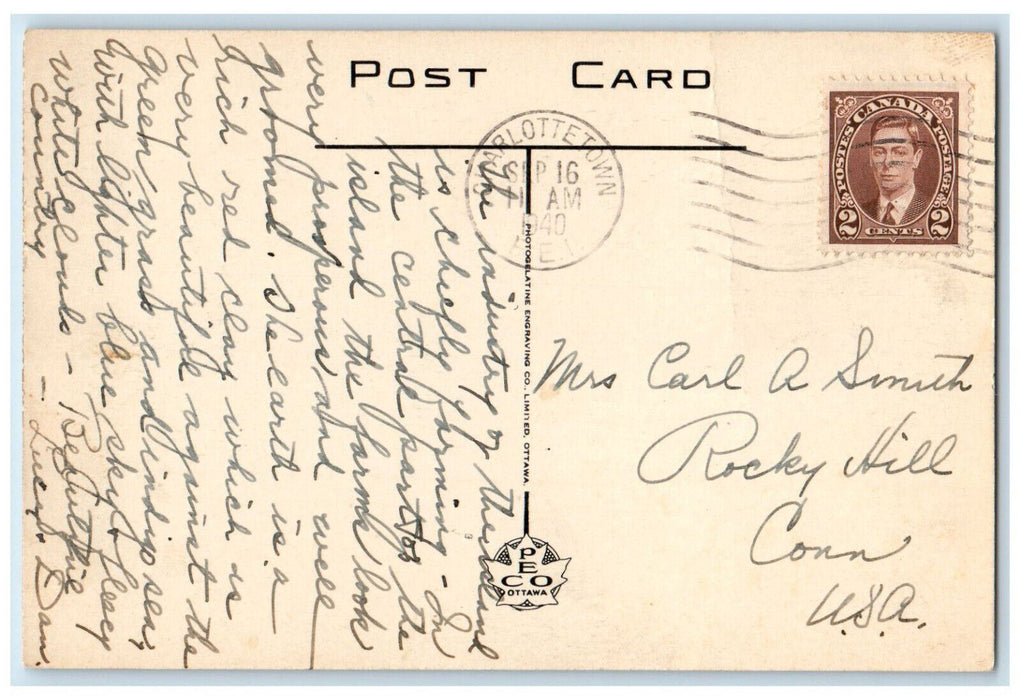 POST CARD
CHARLOTTETOWN
SEP 16
11 AM
1940
P.E.I.
POSTES CANADA POSTAGE
2 CENTS 2
The industry of the island
is chiefly farming - In
the central part of the
island the farms look
very prosperous and well
groomed. The earth is a
rich red clay which is
very beautiful against the
green grass and indigo sea,
with lighter blue sky & fleecy
white clouds - Beautiful
country
- Lucy & Dan.
PHOTOGELATINE ENGRAVING CO., LIMITED, OTTAWA.
PECO
OTTAWA
Mrs Carl A Smith
Rocky Hill
Conn
U.S.A.